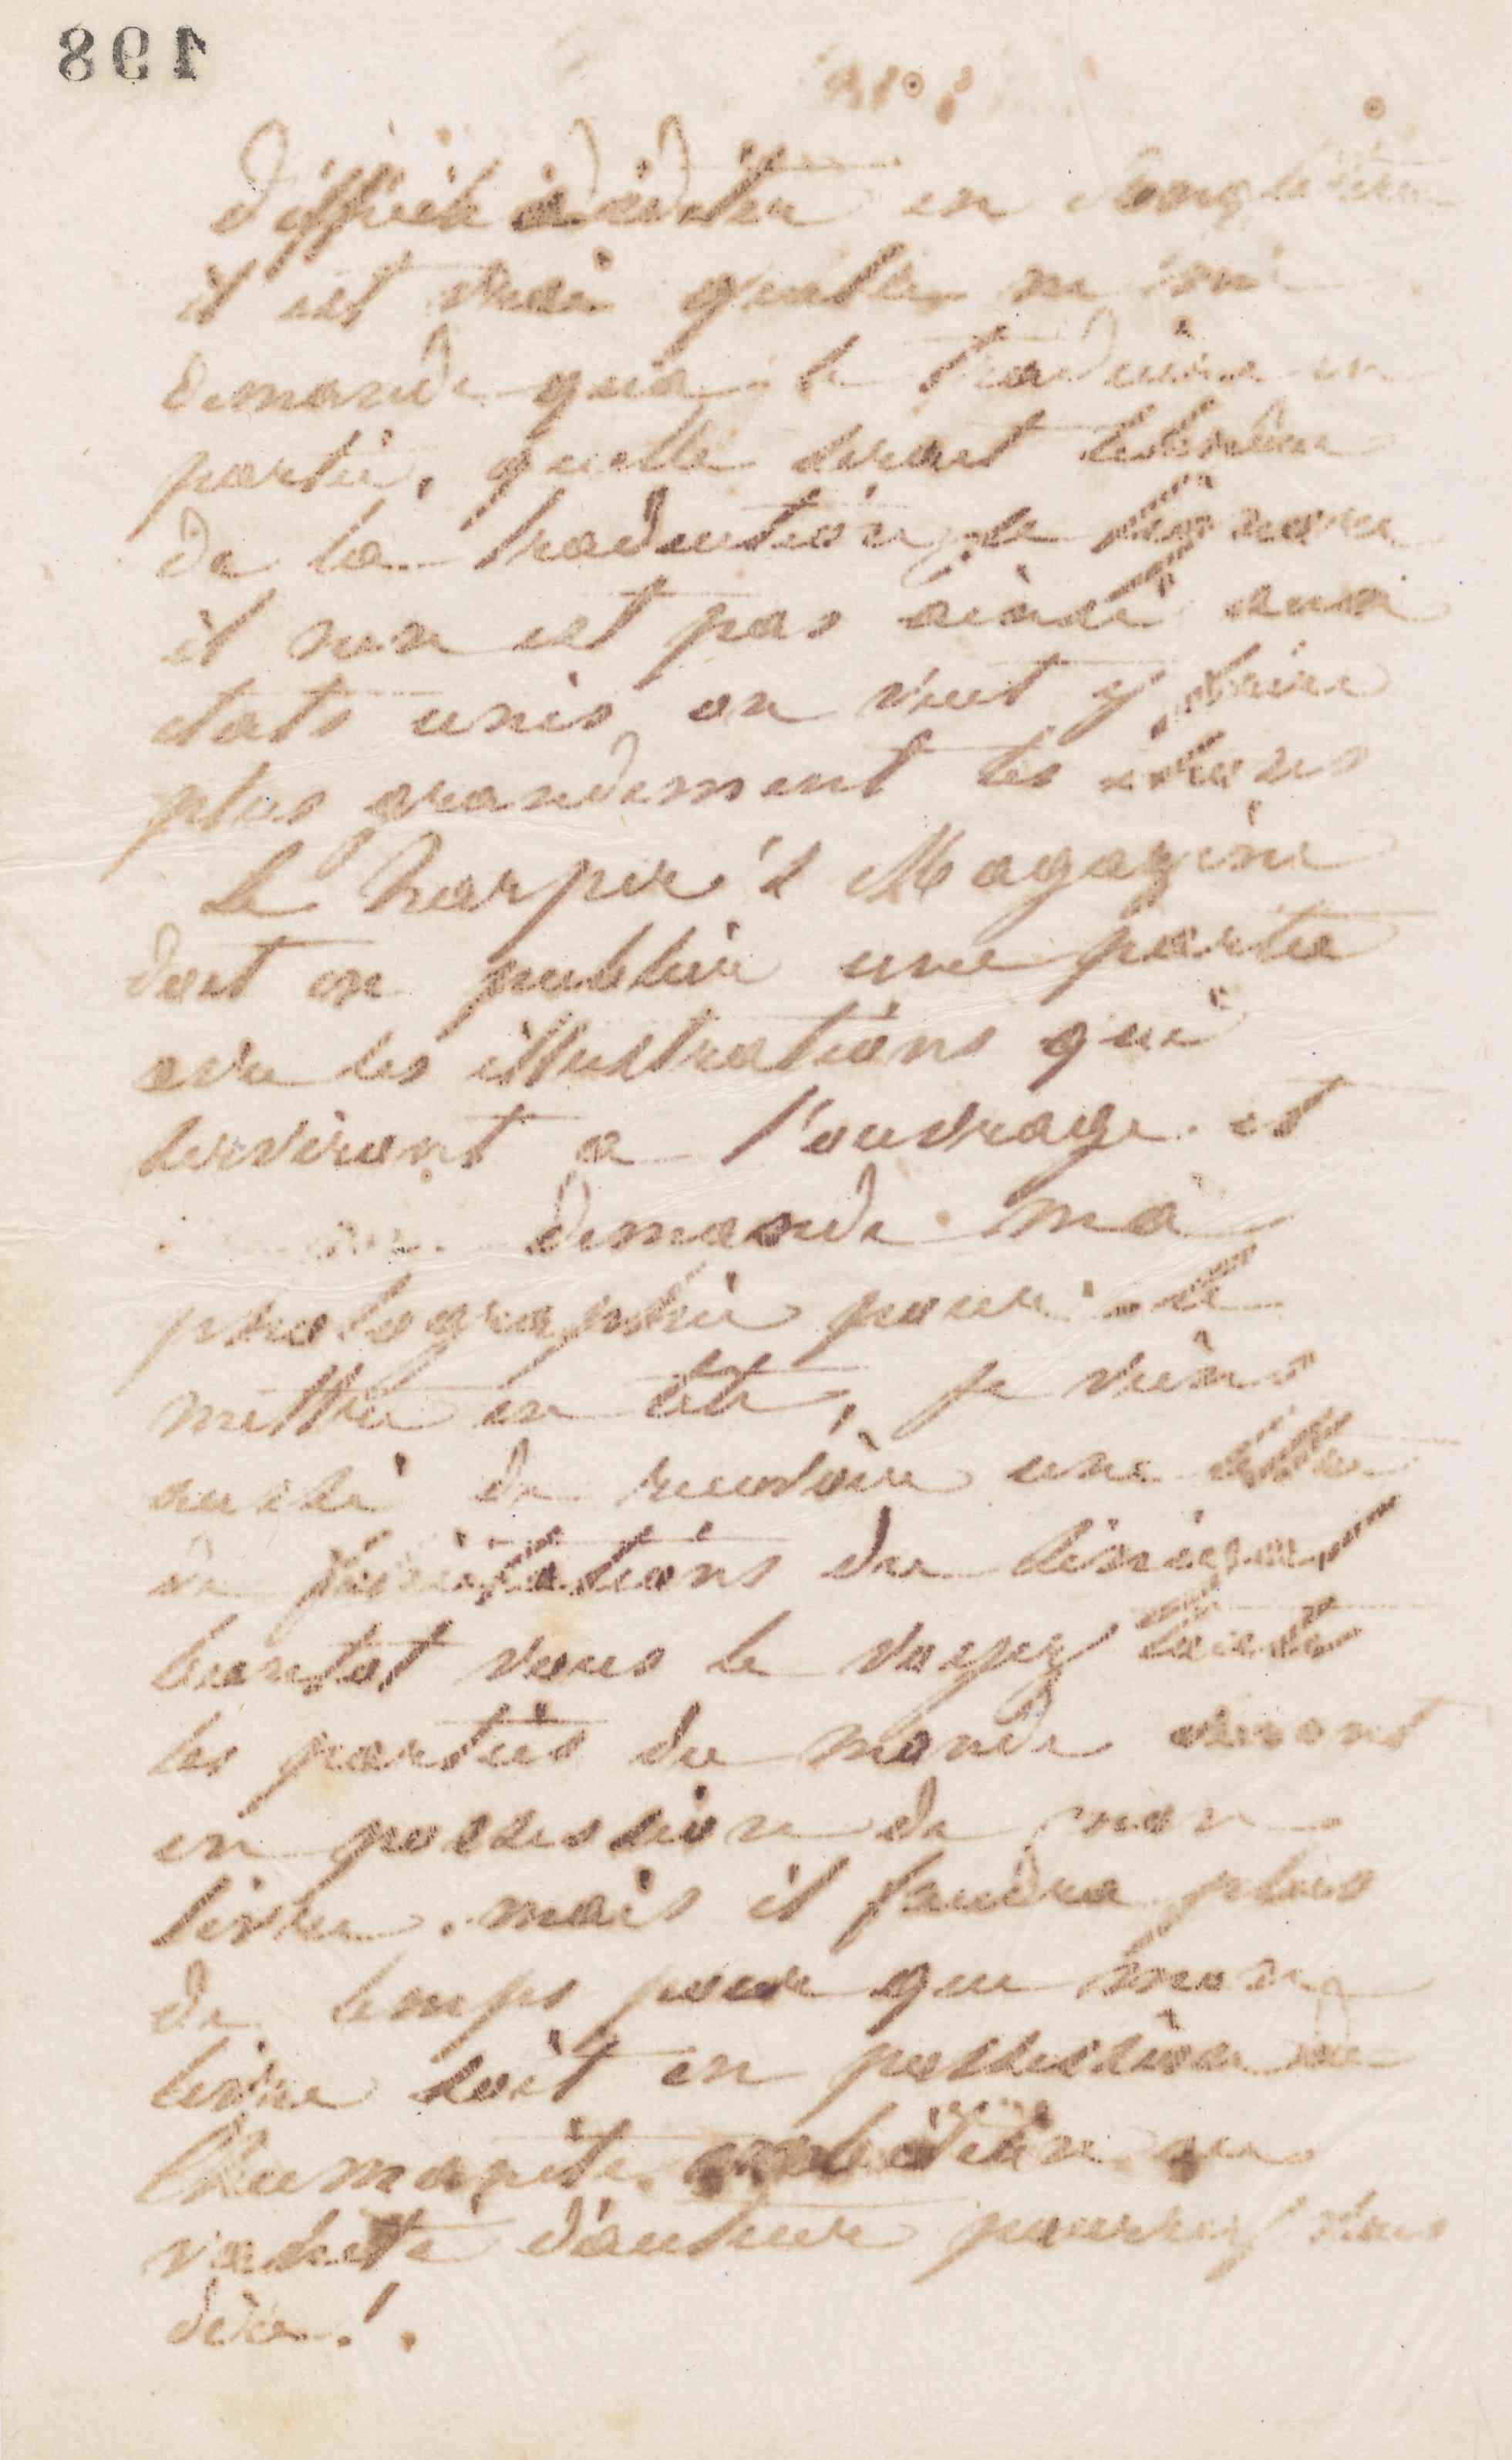 198
difficile à éditer en Angleterre
il est vrai quelle ne me
demande qua le traduire en
partie, quelle serait
de la traduction, je
il nen est pas ainsi aux
états unis, on veut y faire
plus grandement les choses
Le harper's Magazine
doit en publier une partie
avec les illustrations qui
serviront a l'ouvrage et
demande ma
photographie pour la
mettre en tête, je viens
aussi de recevoir une lettre
de félicitations du
bientot vous le voyez toutes
les parties du monde seront
en possession de mon
livre. mais il faudra plus
de temps pour que mon
livre soit en possession de
lhumanité. ambition ou
vanité d'auteur pourrez vous
dire!.